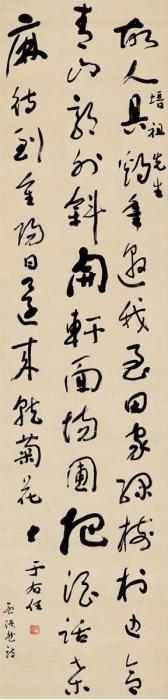 培祖先生
故人具雞黍邀我至田家綠樹村邊合
青山郭外斜開軒面場圃把酒話桑
麻待到重陽日還來就菊花
于右任
孟浩然詩